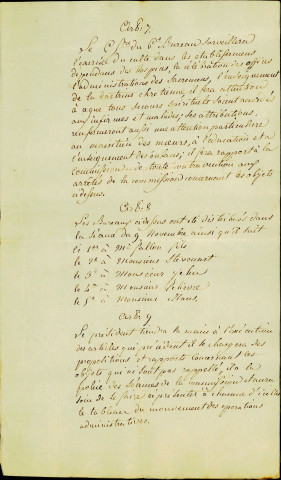 Art. 7
Le C[...] du 1er Bureau Surveillera
l'exercice du culte dans les établissemens
dependans des hospices, la célébration des offices
l'administration des Sacremens, l'enseignement
de la doctrine chretienne, il fera attention
à ce que tous secours spirituels soient
aux infirmes et malades; ses attributions
renfermeront aussi une attention particulière
au maintien des mœurs, à l'education et a
l'enseignement des enfans; il fera rapport à la
commission de toute contravention aux
arretés de la commission concernant les objets
cidessus.
Art. 8
Les Bureaux cidessus ont été distribués dans
la séance du 9 Novembre ainsi qu'il suit
le 1er à Mr
le 2e à Monsieur
le 3e à Monsieur
le 4e à Monsieur
le 5e à Monsieur
Art. 9
Le président tiendra la main à l'execution
des articles qui précèdent il se chargera des
propositions et rapports concernant les
objets qui n'ont pas
des séances de la commission et aura
soin de se faire representer à chacune d'icelles
le tableau du mouvement des operations
administratives.